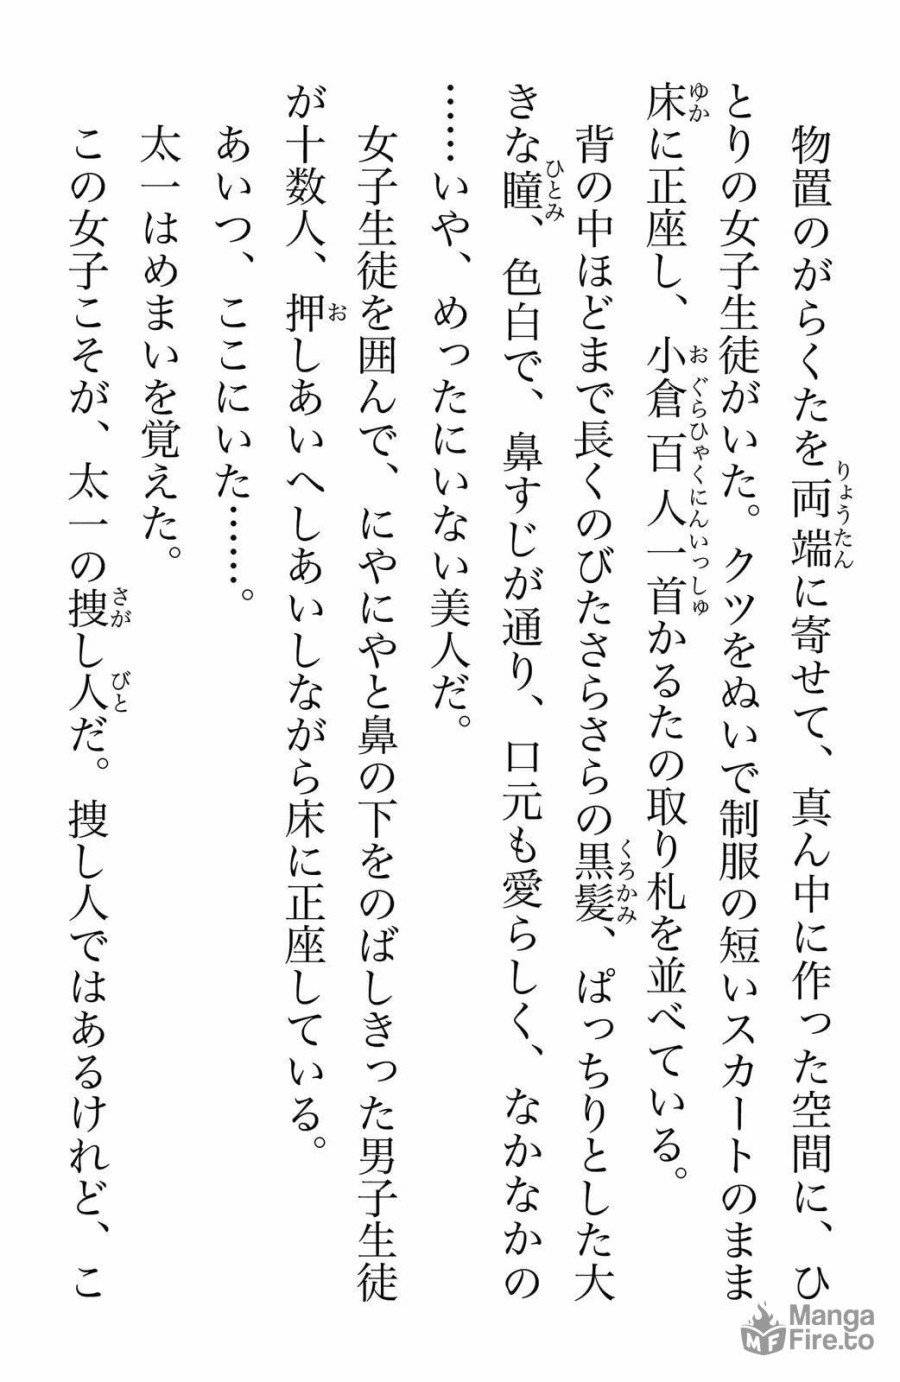 物置のがらくたを両端に寄せて、真ん中に作った空間に、ひ
とりの女子生徒がいた。クツをぬいで制服の短いスカートのまま
床に正座し、小倉百人一首かるたの取り札を並べている。
背の中ほどまで長くのびたさらさらの黒髪、ぱっちりとした大
きな瞳、色白で、鼻すじが通り、口元も愛らしく、なかなかの
……いや、めったにいない美人だ。
女子生徒を囲んで、にやにやと鼻の下をのばしきった男子生徒
が十数人、押しあいへしあいしながら床に正座している。
あいつ、ここにいた……。
太一はめまいを覚えた。
この女子こそが、太一の捜し人だ。捜し人ではあるけれど、こ
りょうたん
ゆか
おぐらひゃくにんいっしゅ
くろかみ
ひとみ
お
さが
びと
Manga
Fire.to
MF